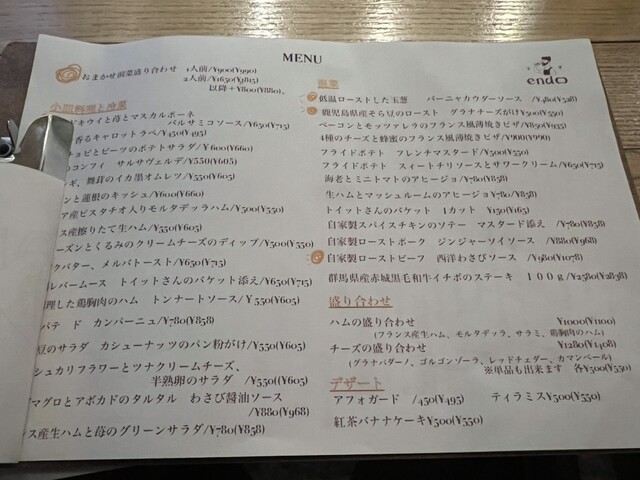 MENU
endo
おまかせ前菜盛り合わせ 1人前/¥900(¥990)
2人前/¥1650(¥1815)
以降+¥800(¥880)。
小皿料理と冷菜
ドキウイと苺とマスカルポーネ
バルサミコソース/¥650(¥715)
香るキャロットラペ/¥450(¥495)
チョビとビーツのポテトサラダ/¥600(¥660)
のコンフィ サルサヴェルデ/¥550(¥605)
ギ、舞茸のイカ墨オムレツ/¥500(¥550)
ンと蓮根のキッシュ/¥600(¥660)
ア産ピスタチオ入りモルタデッラハム/¥500(¥550)
ス産擦りたて生ハム/¥500(¥550)
ーズンとくるみのクリームチーズのディップ/¥500(¥550)
クバター、メルバトースト/¥650(¥715)
レバームース トイットさんのバゲット添え/¥650(¥715)
理した鶏胸肉のハム トンナートソース/¥550(¥605)
パテ ド カンパーニュ/¥780(¥858)
豆のサラダ カシューナッツのパン粉がけ/¥550(¥605)
シュカリフラワーとツナクリームチーズ、
半熟卵のサラダ /¥550((¥605)
マグロとアボカドのタルタル わさび醤油ソース
/¥880(¥968)
ス産生ハムと苺のグリーンサラダ/¥780(¥858)
温菜
低温ローストした玉葱 バーニャカウダーソース /¥480(¥528)
鹿児島県産そら豆のロースト グラナチーズがけ¥500(¥550)
ベーコンとモッツァレラのフランス風薄焼きピザ/¥850(¥935)
4種のチーズと蜂蜜のフランス風薄焼きピザ/¥900(¥990)
フライドポテト フレンチマスタード/¥500(¥550)
フライドポテト スィートチリソースとサワークリーム/¥650(¥715)
海老とミニトマトのアヒージョ/¥780(¥858)
生ハムとマッシュルームのアヒージョ/¥780(¥858)
トイットさんのバケット 1カット ¥150(¥165)
自家製スパイスチキンのソテー マスタード添え /¥780(¥858)
自家製ローストポーク ジンジャーソイソース /¥880(¥968)
自家製ローストビーフ 西洋わさびソース /¥980(¥1078)
群馬県産赤城黒毛和牛イチボのステーキ 100g/¥2580(¥2838)
盛り合わせ
ハムの盛り合わせ ¥1000(¥1100)
(フランス産生ハム、モルタデッラ、サラミ、鶏胸肉のハム)
チーズの盛り合わせ ¥1280(¥1408)
(グラナパダーノ、ゴルゴンゾーラ、レッドチェダー、カマンベール)
※単品も出来ます 各¥500(¥550)
デザート
アフォガード /450(¥495) ティラミス¥500(¥550)
紅茶バナナケーキ¥500(¥550)